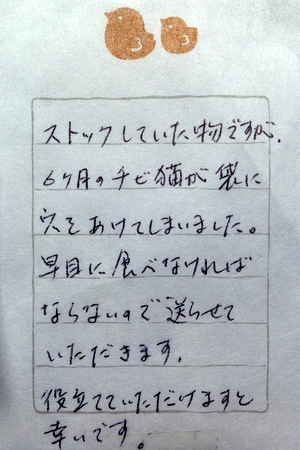 ストックしていた物ですが、
6ヶ月のチビ猫が袋に
穴をあけてしまいました。
早目に食べなければ
ならないので送らせて
いただきます。
役立てていただけますと
幸いです。